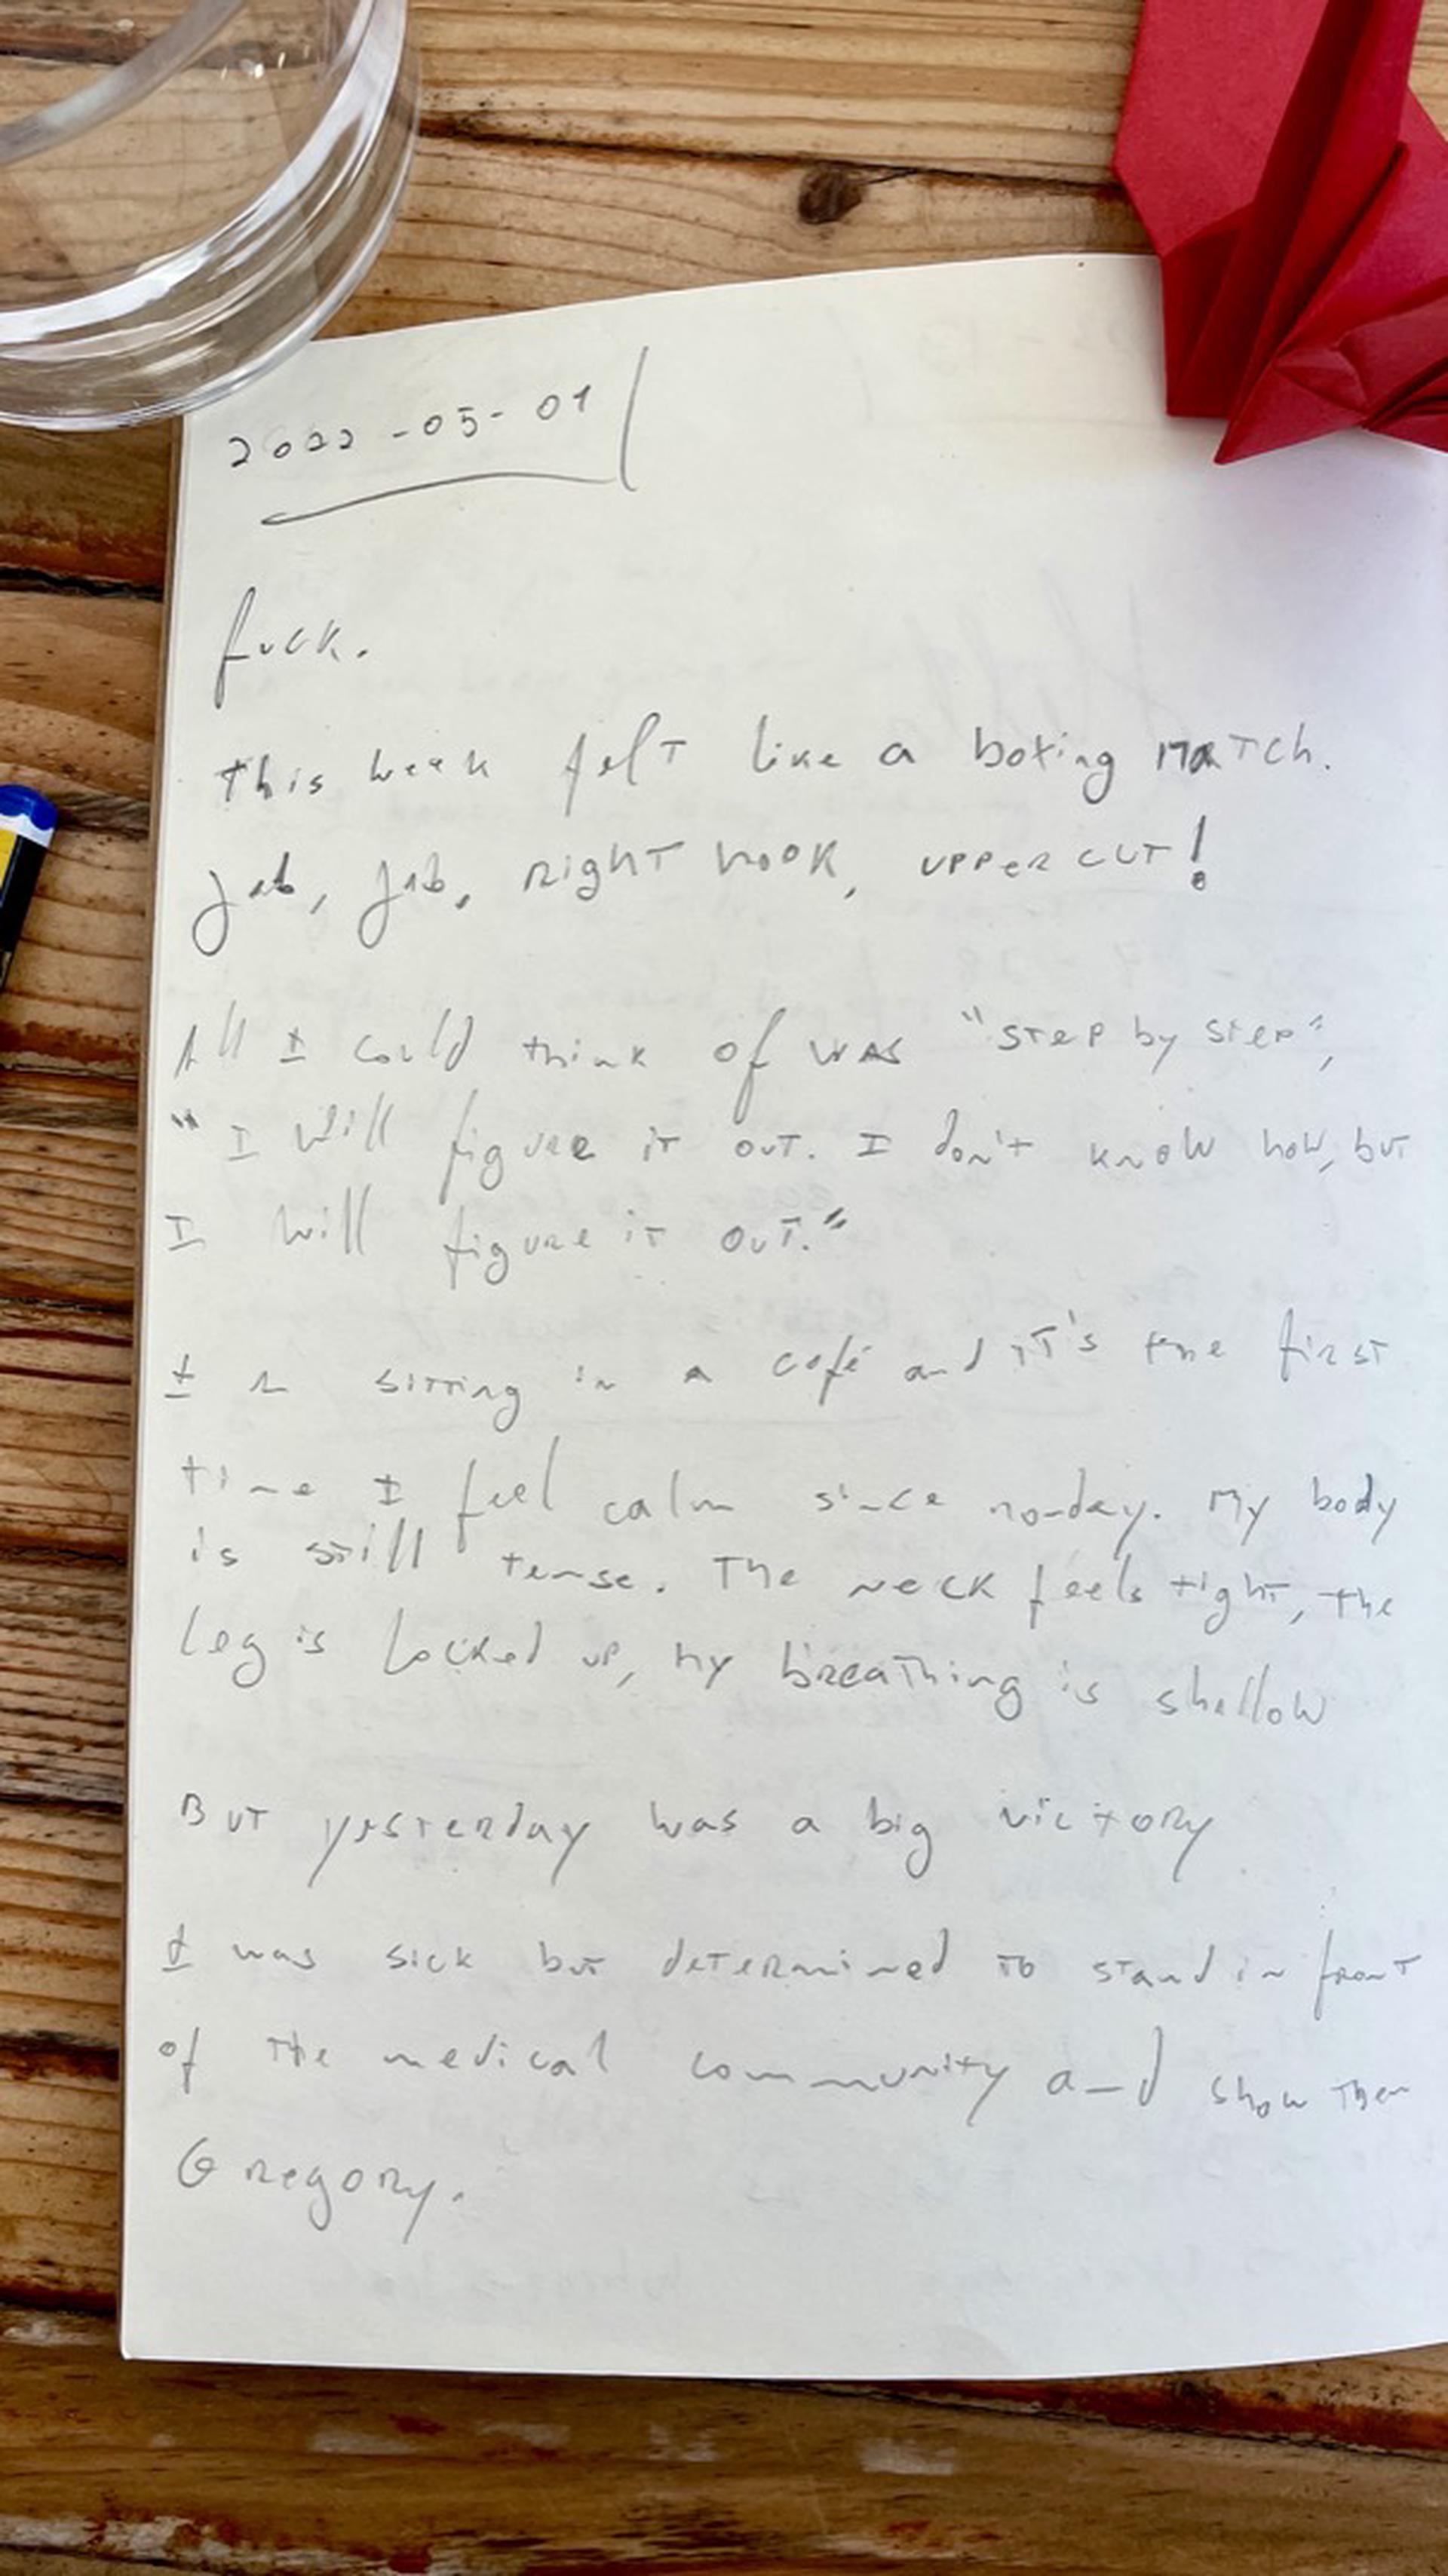 2022-05-01
fuck.
This week felt like a boxing match.
Jab, jab, right hook, uppercut!
All I could think of was "step by step",
"I will figure it out. I don't know how, but
I will figure it out."
I m sitting in a café and it's the first
time I feel calm since monday. My body
is still tense. The neck feels tight, the
leg is locked up, my breathing is shallow
But yesterday was a big victory
I was sick but determined to stand in front
of the medical community and show them
Gregory.